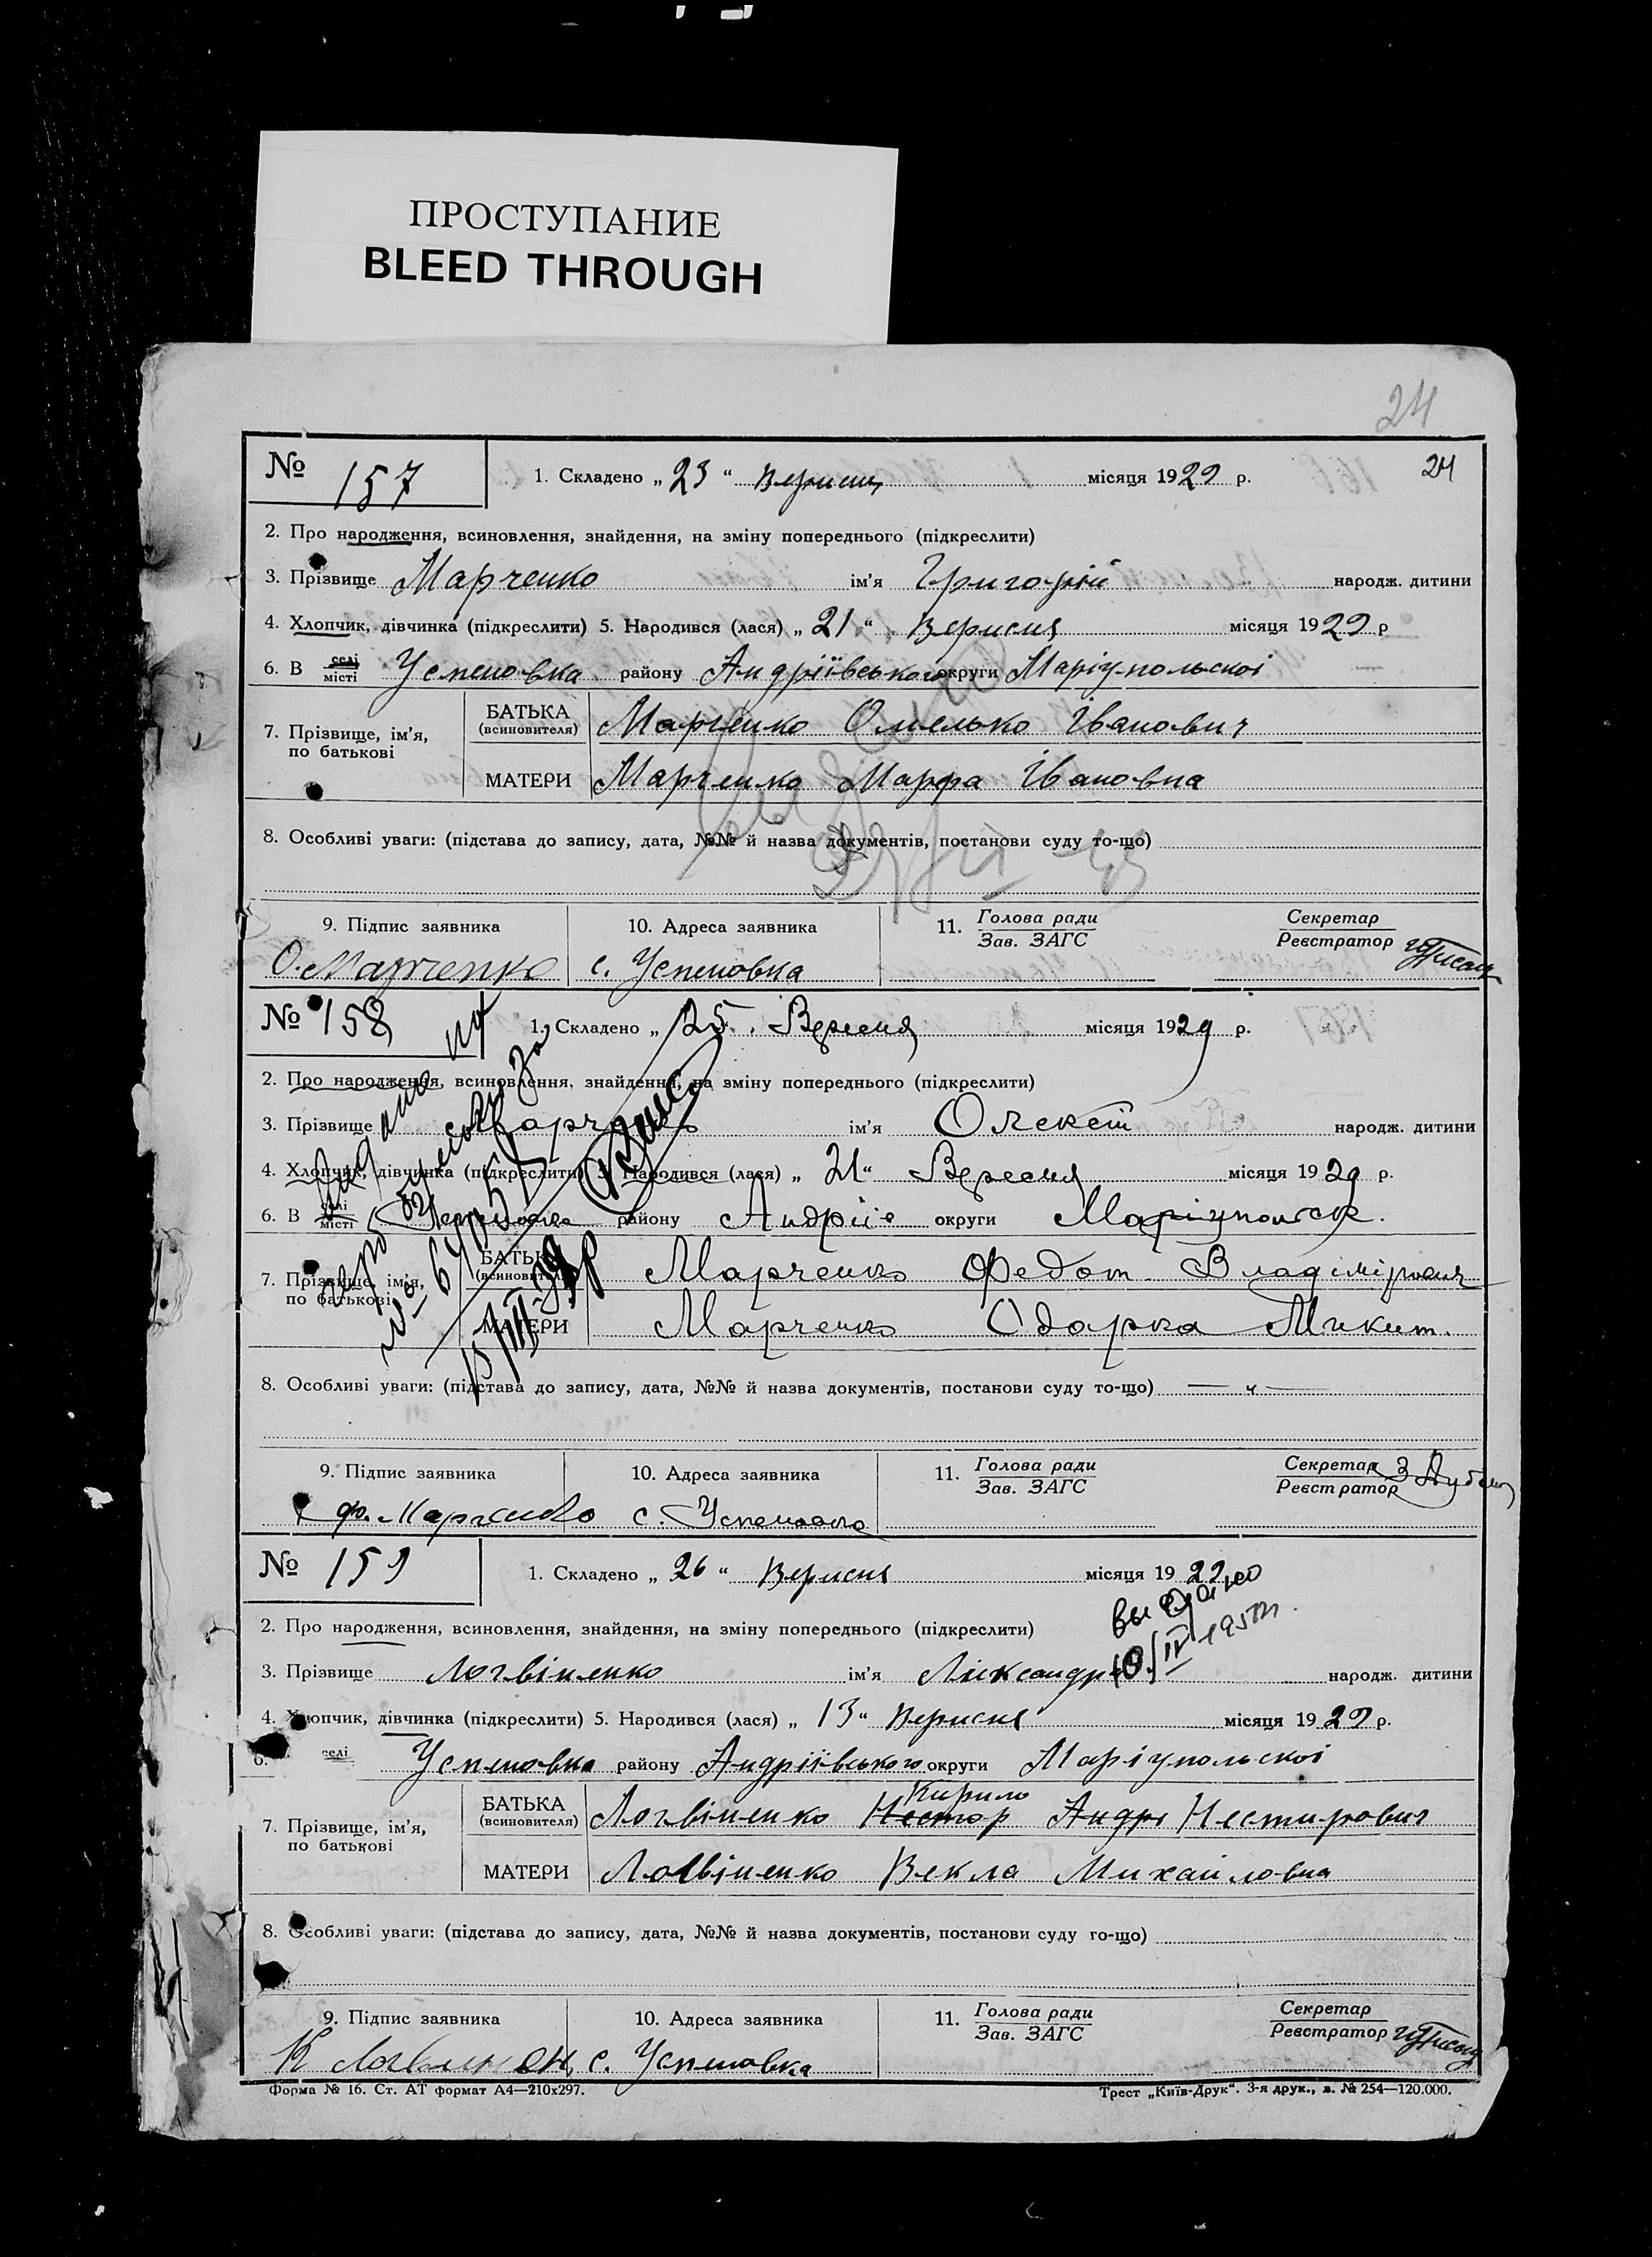 ПРОСТУПАНИЕ
BLEED THROUGH
24
24
№ 157
1. Складено „ 23 “ Вересня місяця 1929 р.
2. Про народження, всиновлення, знайдення, на зміну попереднього (підкреслити)
3. Прізвище Марченко ім'я Григорій народж. дитини
4. Хлопчик, дівчинка (підкреслити) 5. Народився (лася) „ 21 “ Вересня місяця 1929 р
6. В селі місті Успеновка району Андріївського округи Маріупольскоі
7. Прізвище, ім'я, по батькові
БАТЬКА (всиновителя) Марченко Омелько Іванович
МАТЕРИ Марченко Марфа Івановна
8. Особливі уваги: (підстава до запису, дата, №№ й назва документів, постанови суду то-що)
9. Підпис заявника 10. Адреса заявника 11. Голова ради Зав. ЗАГС Секретар Реєстратор
О. Марченко с. Успеновка
№ 158
1. Складено „ 25 . Вересня місяця 1929 р.
2. Про народження, всиновлення, знайдення, на зміну попереднього (підкреслити)
3. Прізвище Марченко ім'я Олексій народж. дитини
4. Хлопчик, дівчинка (підкреслити) 5. Народився (лася) „ 21 “ Вересня місяця 1929 р.
6. В селі місті Успеновка району Андріів округи Маріупольск.
7. Прізвище, ім'я, по батькові
БАТЬКА (всиновителя) Марченко Федот Владімірович
МАТЕРИ Марченко Одарка Микит.
8. Особливі уваги: (підстава до запису, дата, №№ й назва документів, постанови суду то-що) — „ —
9. Підпис заявника 10. Адреса заявника 11. Голова ради Зав. ЗАГС Секретар Реєстратор
Ф. Марченко с. Успеновка
№ 159
1. Складено „ 26 “ Вересня місяця 1929
выдано
10/IV 195
2. Про народження, всиновлення, знайдення, на зміну попереднього (підкреслити)
3. Прізвище Логвіненко ім'я Александра народж. дитини
4. Хлопчик, дівчинка (підкреслити) 5. Народився (лася) „ 13 “ Вересня місяця 1929 р.
6. селі Успеновка району Андріївського округи Маріупольскоі
7. Прізвище, ім'я, по батькові
Кирило
БАТЬКА (всиновителя) Логвіненко Нестор Андрі Нестирович
МАТЕРИ Логвіненко Векла Михайловна
8. Особливі уваги: (підстава до запису, дата, №№ й назва документів, постанови суду го-що)
9. Підпис заявника 10. Адреса заявника 11. Голова ради Зав. ЗАГС Секретар Реєстратор
К с. Успеновка
Форма № 16. Ст. АТ формат А4—210х297. Трест „Київ-Друк“. 3-я друк., з. № 254—120.000.